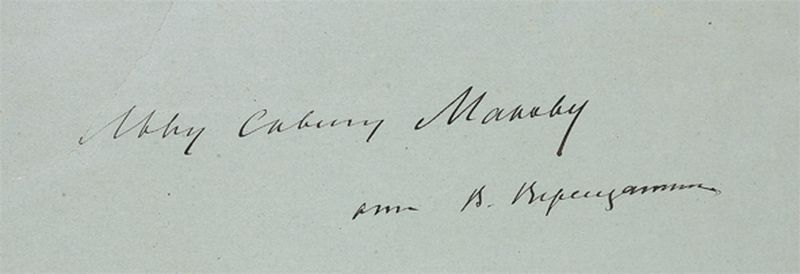 Льву Савичу Макову
отъ В. Верещагина